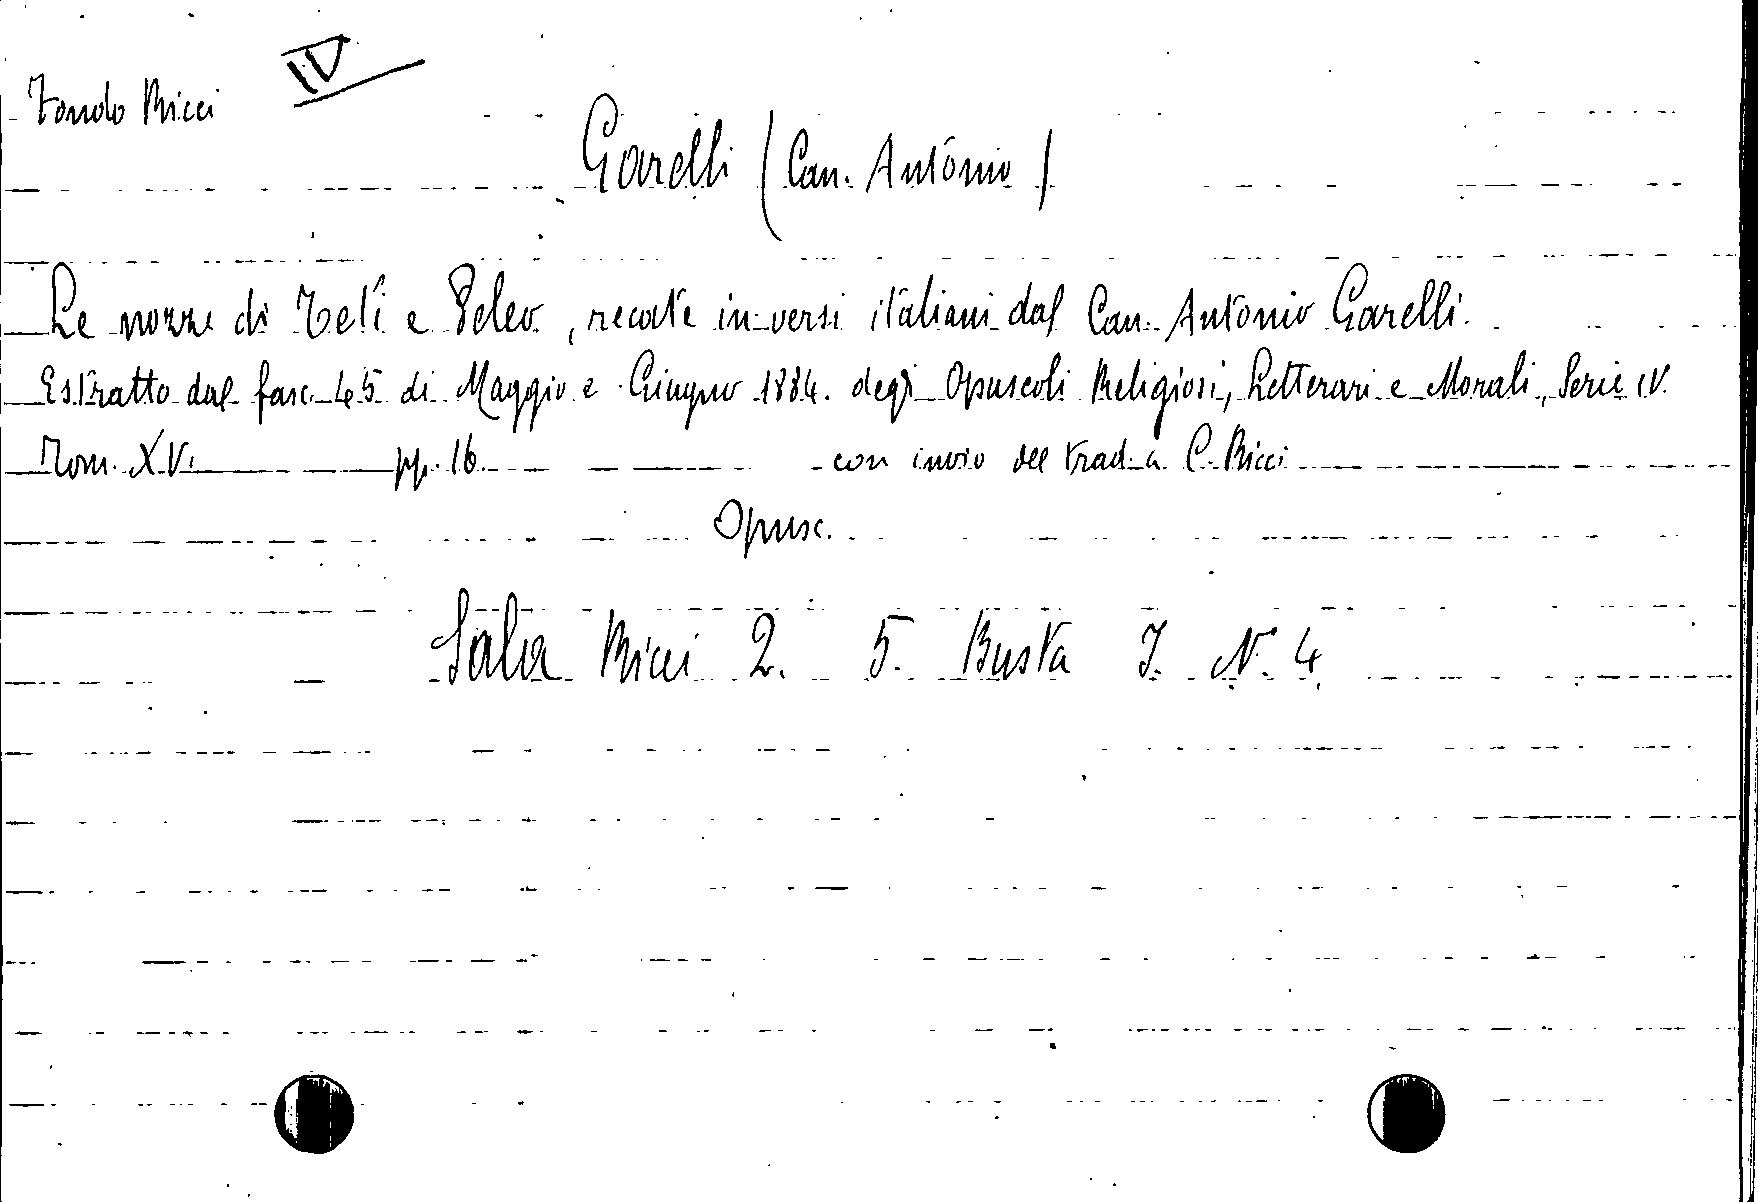 Fondo Ricci IV
Garelli (Can. Antonio)
Le nozze di Teti e Peleo, recate in versi italiani dal Can. Antonio Garelli.
Estratto dal fasc. 45 di Maggio e Giugno 1884. degli Opuscoli Religiosi, Letterari e Morali, Serie IV.
Tom. XV. pp. 16. con invio del trad. a C. Ricci
Opusc.
Sala Ricci 2. 5. Busta I. N. 4